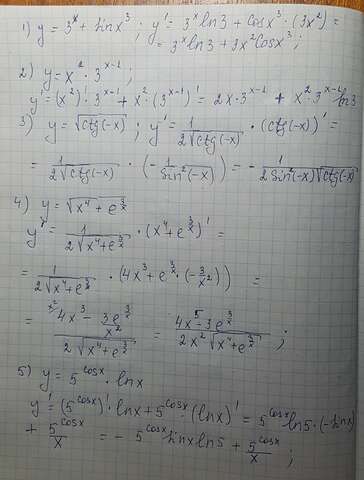 1) y = 3^x + sin x^3 ; y' = 3^x ln3 + cos x^3 · (3x^2) =
= 3^x ln3 + 3x^2 cos x^3 ;
2) y = x^2 · 3^(x-2) ;
y' = (x^2)' · 3^(x-2) + x^2 · (3^(x-2))' = 2x · 3^(x-2) + x^2 · 3^(x-2) ln3
3) y = √(ctg(-x)) ; y' = 1/(2√(ctg(-x))) · (ctg(-x))' =
= 1/(2√(ctg(-x))) · (-1/(sin^2(-x))) = - 1/(2 sin^2(-x) √(ctg(-x)))
4) y = √(x^4 + e^(3/x))
y' = 1/(2√(x^4 + e^(3/x))) · (x^4 + e^(3/x))' =
= 1/(2√(x^4 + e^(3/x))) · (4x^3 + e^(3/x) · (-3/x^2)) =
= (4x^3 - 3e^(3/x)/x^2)/(2√(x^4 + e^(3/x))) = (4x^5 - 3e^(3/x))/(2x^2 √(x^4 + e^(3/x))) ;
5) y = 5^(cosx) · lnx
y' = (5^(cosx))' · lnx + 5^(cosx) (lnx)' = 5^(cosx) ln5 · (-sinx)
+ 5^(cosx)/x = - 5^(cosx) sinx ln5 + 5^(cosx)/x ;